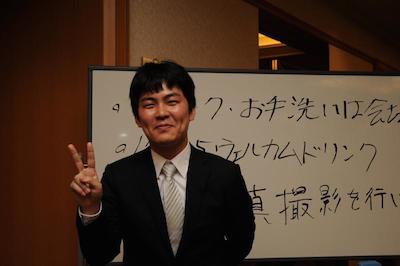 ク・お手洗いは会
ウェルカムドリンク
真撮影を行い